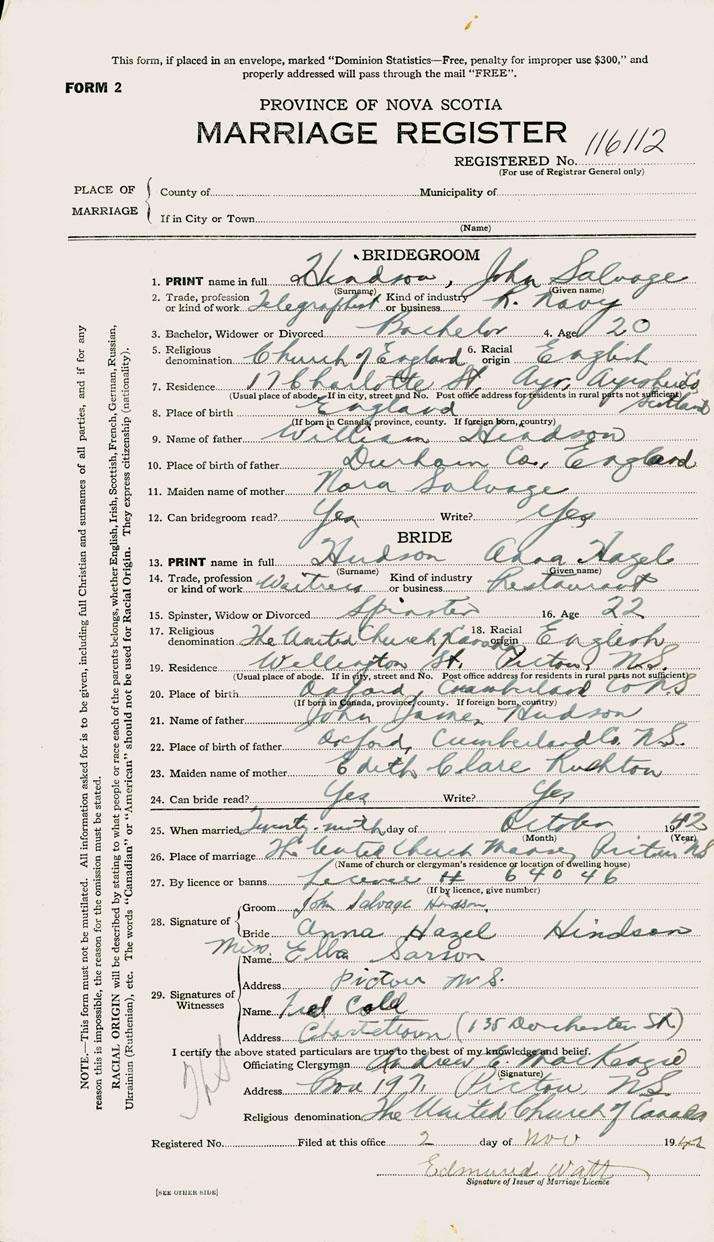 This form, if placed in an envelope, marked "Dominion Statistics—Free, penalty for improper use $300," and
properly addressed will pass through the mail "FREE".
FORM 2
PROVINCE OF NOVA SCOTIA
MARRIAGE REGISTER
REGISTERED No. 116112
(For use of Registrar General only)
PLACE OF MARRIAGE
County of Municipality of
If in City or Town
(Name)
BRIDEGROOM
1. PRINT name in full Hindson, John Salvage
(Surname) (Given name)
2. Trade, profession or kind of work Telegraphist Kind of industry or business R. Navy
3. Bachelor, Widower or Divorced Bachelor 4. Age 20
5. Religious denomination Church of England 6. Racial origin English
7. Residence 17 Charlotte St, Ayr, Ayrshire Scotland
(Usual place of abode. If in city, street and No. Post office address for residents in rural parts not sufficient)
8. Place of birth England
(If born in Canada, province, county. If foreign born, country)
9. Name of father William Hindson
10. Place of birth of father Durham Co., England
11. Maiden name of mother Nora Salvage
12. Can bridegroom read? Yes Write? Yes
BRIDE
13. PRINT name in full Hudson Anna Hazel
(Surname) (Given name)
14. Trade, profession or kind of work Waitress Kind of industry or business Restaurant
15. Spinster, Widow or Divorced Spinster 16. Age 22
17. Religious denomination The United Church Canada 18. Racial origin English
19. Residence Wellington St, Pictou, N.S.
(Usual place of abode. If in city, street and No. Post office address for residents in rural parts not sufficient)
20. Place of birth Oxford, Cumberland Co N.S
(If born in Canada, province, county. If foreign born, country)
21. Name of father John James Hudson
22. Place of birth of father Oxford, Cumberland Co. N.S.
23. Maiden name of mother Edith Clare Rushton
24. Can bride read? Yes Write? Yes
25. When married Twenty-ninth day of October 1942
(Month) (Year)
26. Place of marriage The United Church Manse, Pictou NS
(Name of church or clergyman's residence or location of dwelling house)
27. By licence or banns Licence # 64046
(If by licence, give number)
28. Signature of
Groom John Salvage Hindson,
Bride Anna Hazel Hindson
29. Signatures of Witnesses
Name Miss. Ella Sarson
Address Pictou N.S.
Name Fred Cold
Address Charlottetown (135 Dorchester St.)
I certify the above stated particulars are true to the best of my knowledge and belief.
Officiating Clergyman Andrew E. MacKenzie
(Signature)
Address Box 197, Pictou, N.S.
Religious denomination The United Church of Canada
Registered No. Filed at this office 2 day of Nov 1942
Edmund Watt
Signature of Issuer of Marriage Licence
[SEE OTHER SIDE]
NOTE.—This form must not be mutilated. All information asked for is to be given, including full Christian and surnames of all parties, and if for any
reason this is impossible, the reason for the omission must be stated.
RACIAL ORIGIN will be described by stating to what people or race each of the parents belongs, whether English, Irish, Scottish, French, German, Russian,
Ukrainian (Ruthenian), etc. The words "Canadian" or "American" should not be used for Racial Origin. They express citizenship (nationality).